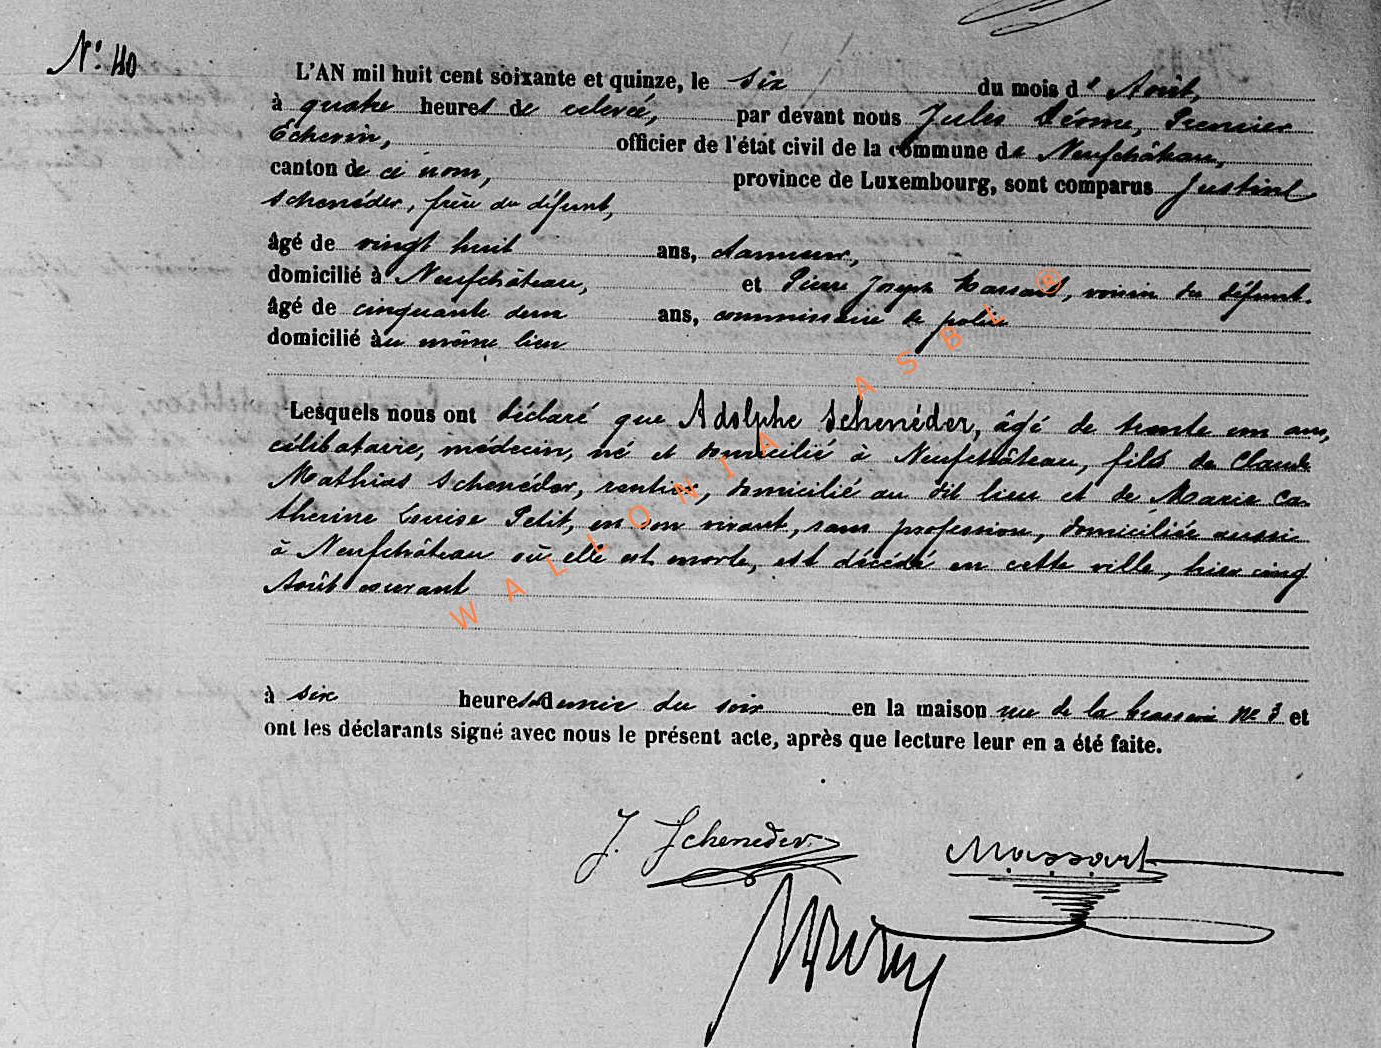 N° 40
L'AN mil huit cent soixante et quinze, le six du mois d'Août,
à quatre heures de relevée, par devant nous Jules Dérome, Premier
Echevin, officier de l'état civil de la commune de Neufchâteau,
canton de ce nom, province de Luxembourg, sont comparus Justin
Schenéder, frère du défunt,
âgé de vingt huit ans, tanneur,
domicilié à Neufchâteau, et Pierre Joseph Massart, voisin du défunt.
âgé de cinquante deux ans, commissaire de police
domicilié au même lieu
Lesquels nous ont déclaré que Adolphe Schenéder, âgé de trente un ans,
célibataire, médecin, né et domicilié à Neufchâteau, fils de Claude
Mathias Schenéder, rentier, domicilié au dit lieu et de Marie Ca-
therine Louise Petit, en son vivant, sans profession, domiciliée aussi
à Neufchâteau où elle est morte, est décédé en cette ville, hier cinq
Août courant
à six heures demie du soir en la maison rue de la brasserie N° 3 et
ont les déclarants signé avec nous le présent acte, après que lecture leur en a été faite.
J. Scheneder
Massart
WALLONIA ASBL ®